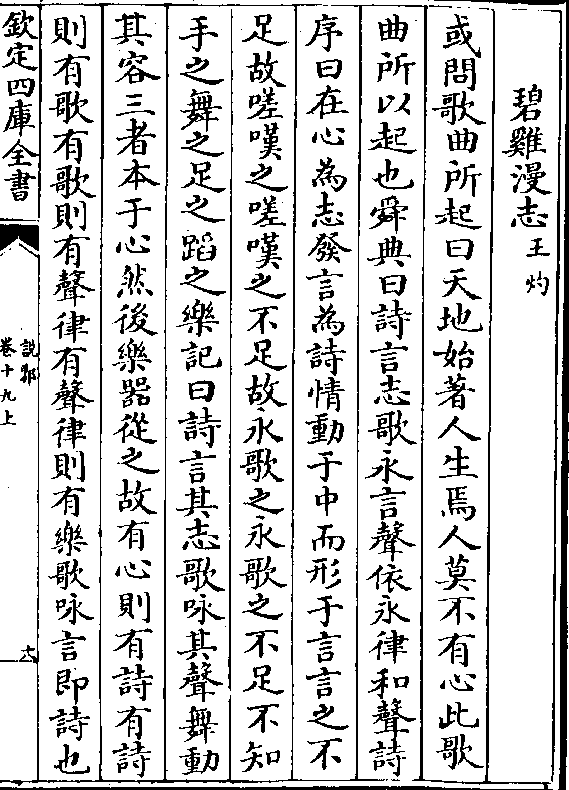 碧雞漫志王灼
或問歌曲所起曰天地始著人生焉人莫不有心此歌
曲所以起也舜典曰詩言志歌永言聲依永律和聲詩
序曰在心為志發言為詩情動于中而形于言言之不
足故嗟嘆之嗟嘆之不足故永歌之永歌之不足不知
手之舞之足之蹈之樂記曰詩言其志歌咏其聲舞動
其容三者本于心然後樂器從之故有心則有詩有詩
則有歌有歌則有聲律有聲律則有樂歌咏言即詩也
欽定四庫全書
說郛
卷十九上